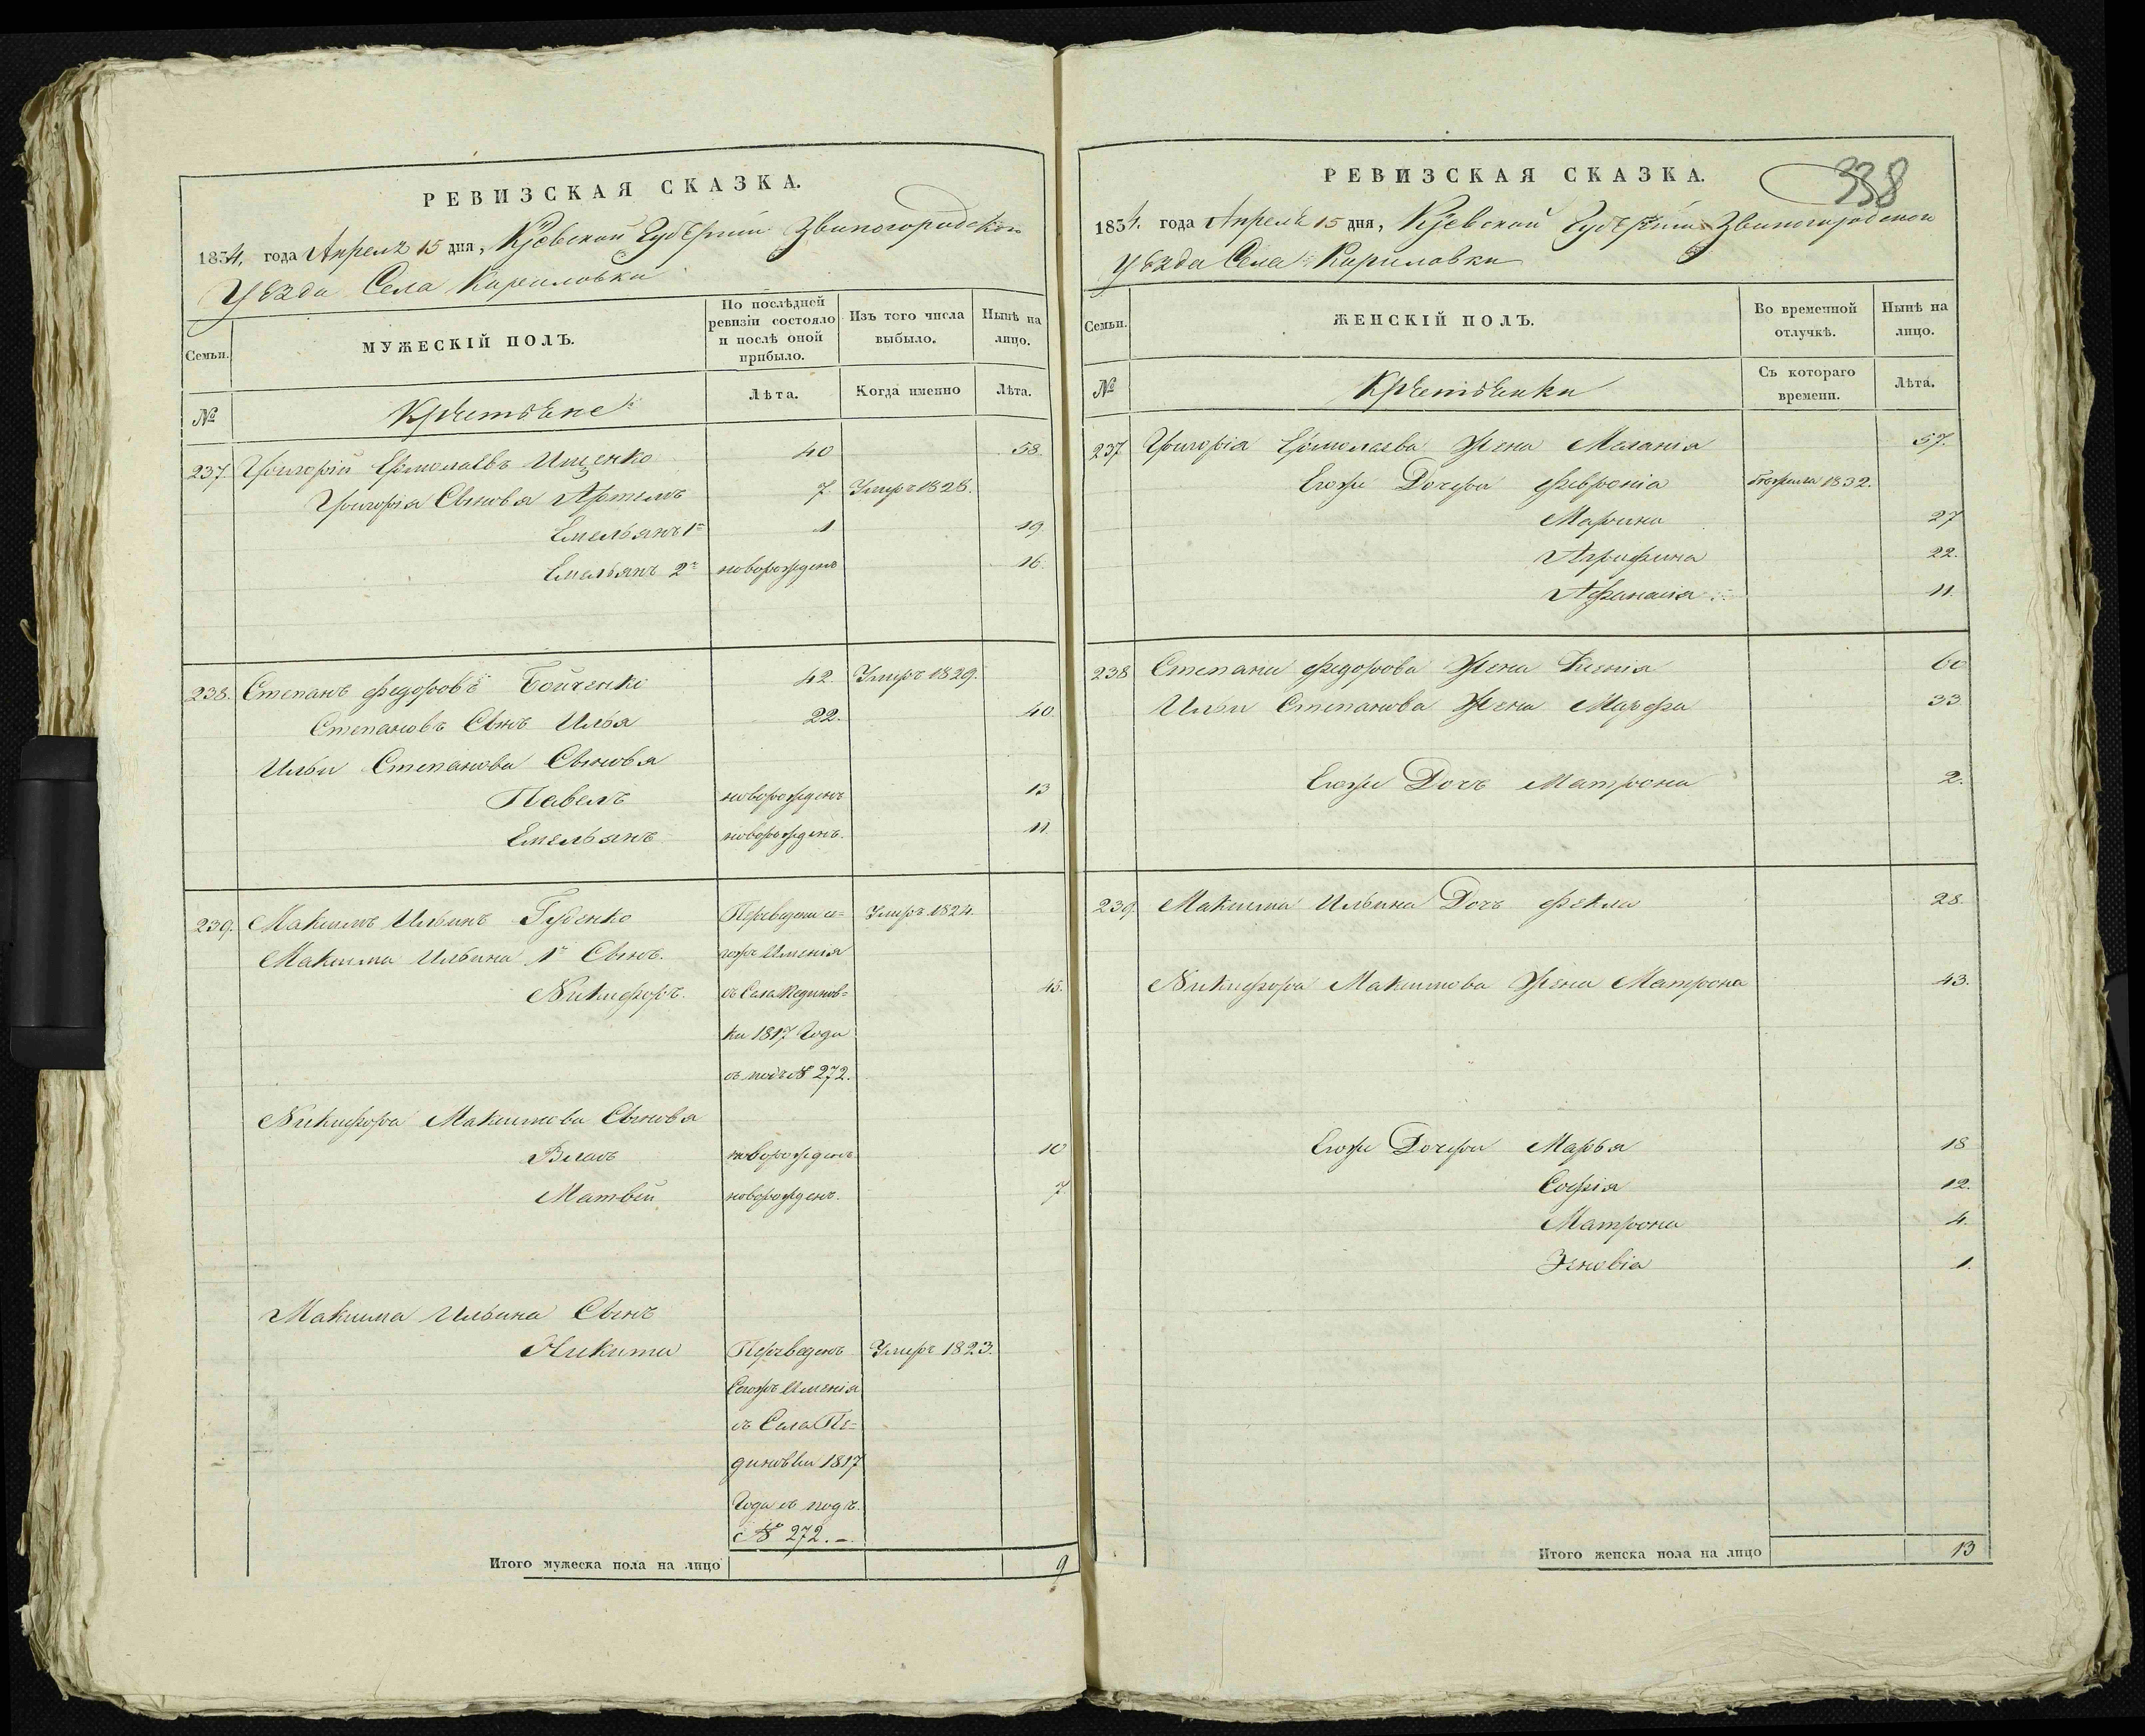 РЕВИЗСКАЯ СКАЗКА.
1834, года Апреля 15 дня, Кіевской Губерніи Звиногородскаго
Уѣзда Села Кириловки
Семьи.
МУЖЕСКІЙ ПОЛЪ.
По послѣдней ревизіи состояло и послѣ оной прибыло.
Изъ того числа выбыло.
Нынѣ на лицо.
№
Крестьяне
Лѣта.
Когда именно
Лѣта.
237. Григорій Ермолаевъ Ищенко 40 58.
Григорія Сыновья Артемъ 7. Умеръ 1828.
Емельянъ 1й 1 19.
Емельянъ 2й новорожденъ 16.
238. Степанъ Федоровъ Бойченко 42. Умеръ 1829.
Степановъ Сынъ Илья 22. 40.
Ильи Степанова Сыновья
Павелъ новорожденъ 13
Емельянъ новорожденъ. 11.
239. Максимъ Ильинъ Губенко Переведени се= Умеръ 1824.
Максима Ильина 1й Сынъ. гожъ Именія
Никифоръ. съ Села Пединов= 45.
ки 1817 Года
съ подъ № 272.
Никифора Максимова Сыновья
Власъ новорожденъ 10
Матвѣй новорожденъ. 7.
Максима Ильина Сынъ
Никита Переведенъ Умеръ 1823.
Сегожъ Именія
съ Села Пе=
диновки 1817
Года съ подъ.
№ 272. –
Итого мужеска пола на лицо 9
РЕВИЗСКАЯ СКАЗКА.
338
1834. года Апреля 15 дня, Кіевской Губерніи Звиногородскаго
Уѣзда Села Кириловки
Семьи.
ЖЕНСКІЙ ПОЛЪ.
Во временной отлучкѣ.
Нынѣ на лицо.
№
Крестьянки
Съ котораго времени.
Лѣта.
237 Григорія Ермолаева Жена Меланія 57.
Егоже Дочери Февронія 1832.
Марина 27
Агрифина 22.
Афанасія 11.
238 Степана Федорова Жена Ксенія 60
Ильи Степанова Жена Марфа 33.
Егоже Дочь Матрона 2.
239. Максима Ильина Дочь Фекла 28.
Никифора Максимова Жена Матрона 43.
Егоже Дочери Марья 18
Софія 12.
Матрона 4.
Зеновіа 1.
Итого женска пола на лицо 13